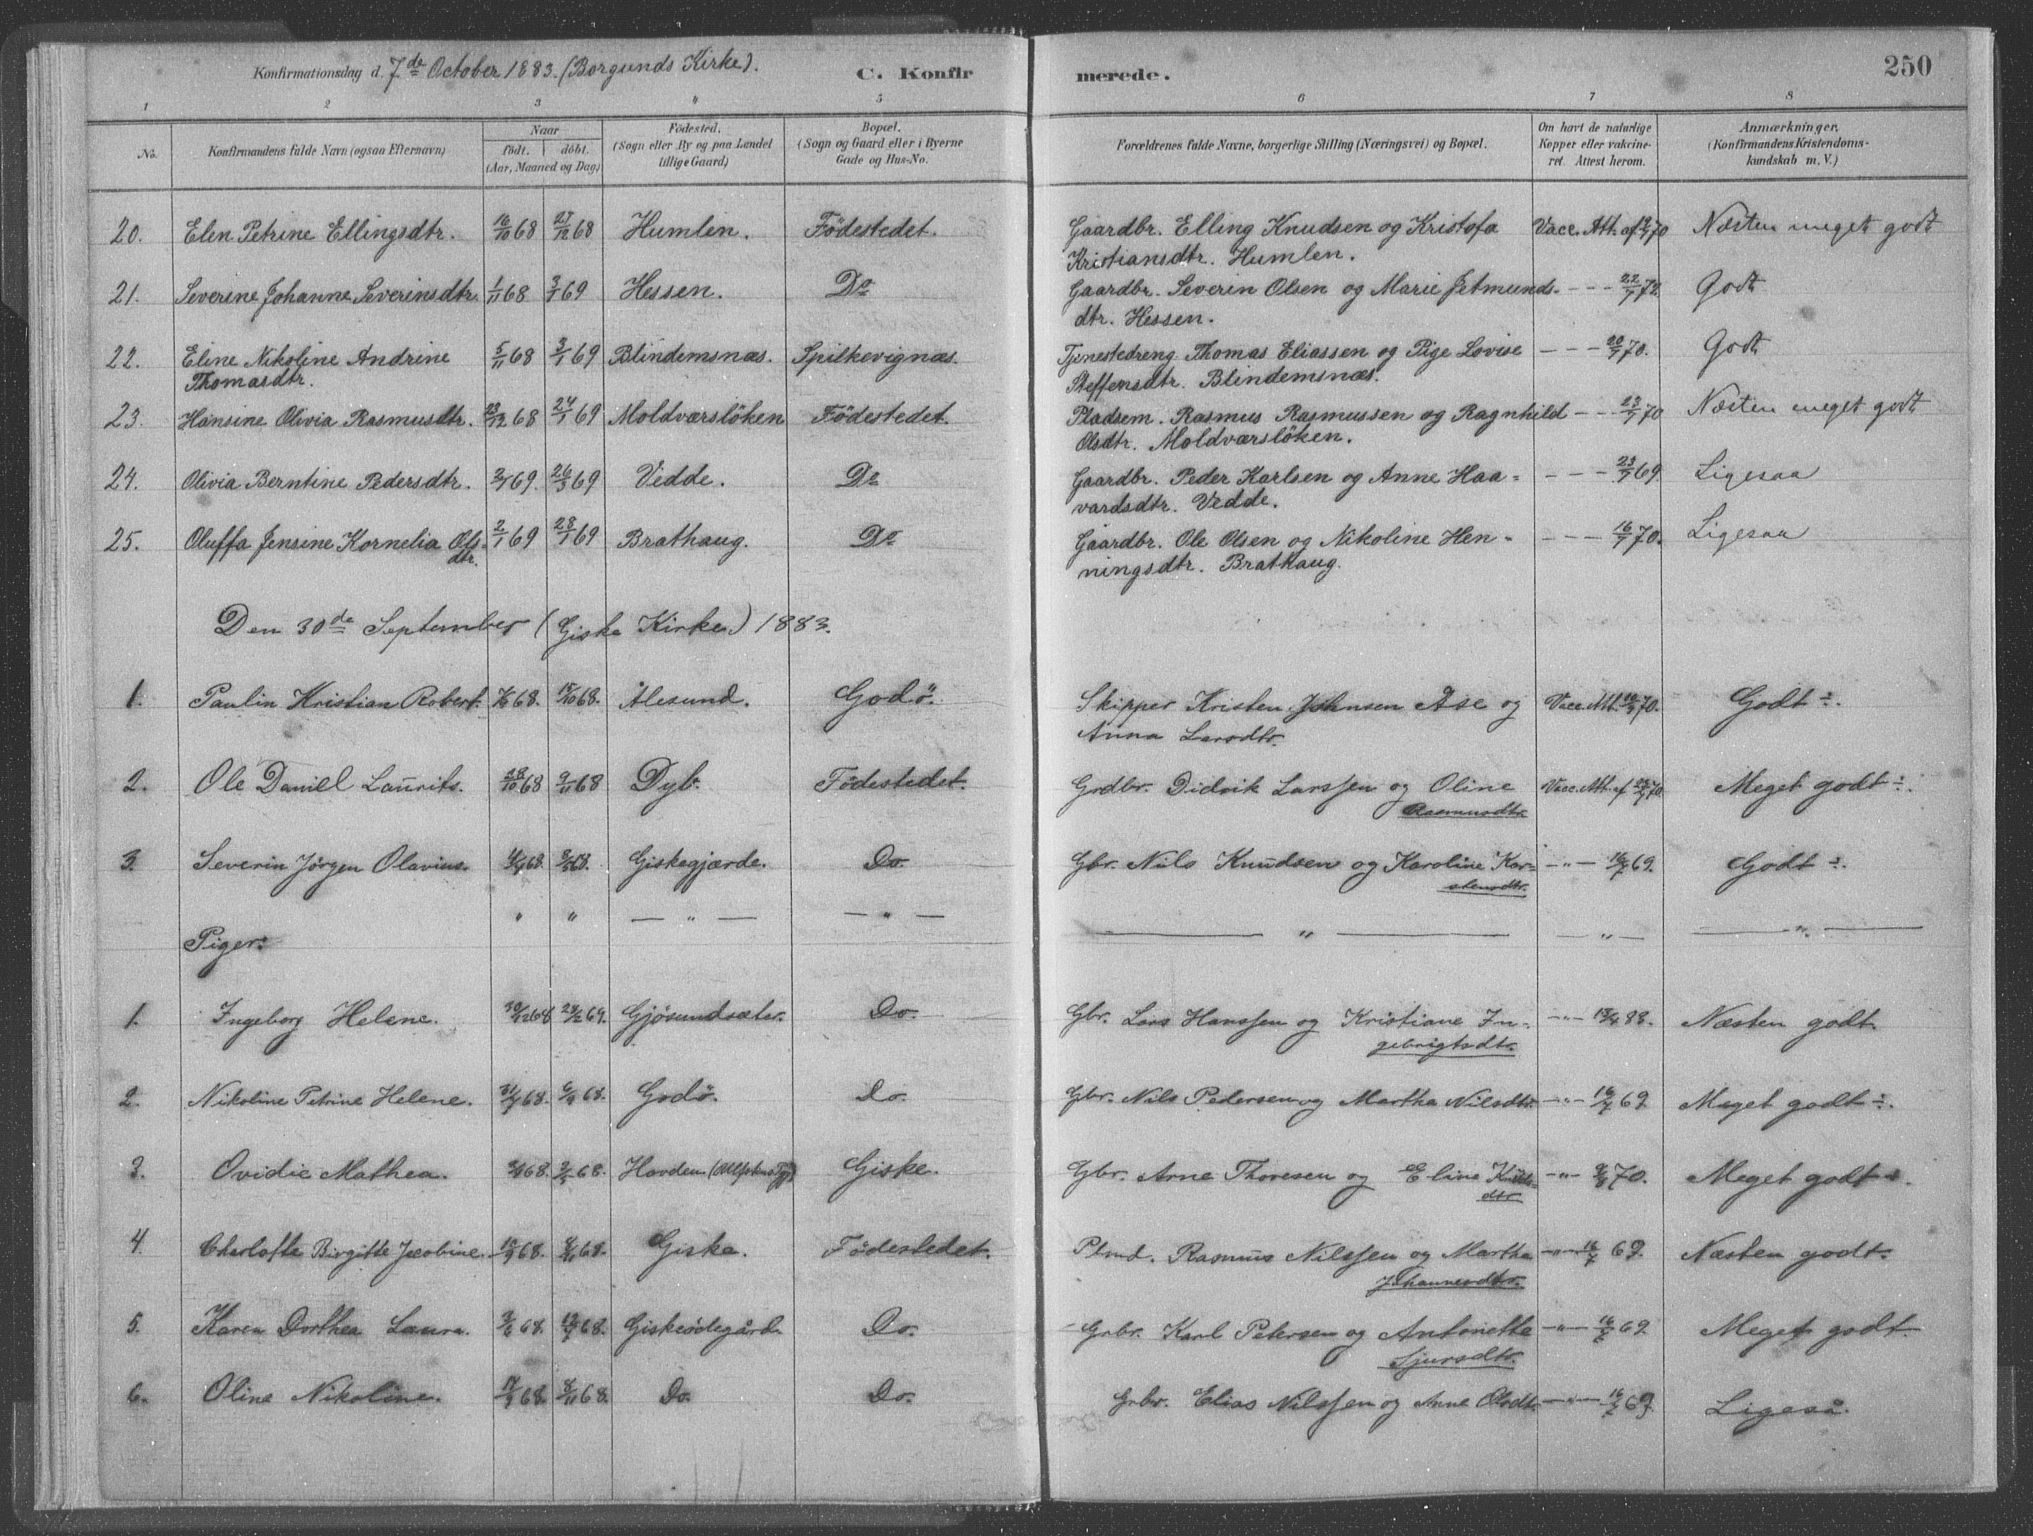 Konfirmationsdag d. 7de October 1883. (Borgunds Kirke). C. Konfirmerede. 250
1 2 3 4 5 6 7 8
No. Konfirmandens fulde Navn (ogsaa Efternavn) Naar födt. döbt. (Aar, Maaned og Dag) Födested. (Sogn eller By og paa Landet tillige Gaard) Bopæl. (Sogn og Gaard eller i Byerne Gade og Hus-No. Forældrenes fulde Navne, borgerlige Stilling (Næringsvei) og Bopæl. Om havt de naturlige Kopper eller vakcineret. Attest herom. Anmærkninger, (Konfirmandens Kristendomskundskab m. V.)
20. Elen Petrine Ellingsdtr. 16/10 68 27/12 68 Humlen. Födestedet. Gaardbr. Elling Knudsen og Kristofa Vacc. Att. af 70 Næsten meget godt
Kristiansdtr. Humlen.
21. Severine Johanne Severinsdtr. 1/11 68 3/1 69 Hessen. Do Gaardbr. Severin Olsen og Marie Jetmunds- - - - 22/7 72. Godt
dtr. Hessen.
22. Eline Nikoline Andrine 5/11 68 3/1 69 Blindemsnæs. Spilkevignæs. Tjenestedreng Thomas Eliassen og Pige Lovise - - - 20/7 70. Godt
Thomasdtr. Steffensdtr. Blindemsnæs.
23. Hansine Olivia Rasmusdtr. 68 24/1 69 Moldværslöken Födestedet. Pladsem. Rasmus Rasmussen og Ragnhild - - - 23/7 70 Næsten meget godt
Olsdtr. Moldværslöken.
24. Olivia Berntine Pedersdtr. 2/1 69. 26/3 69 Vedde. Do Gaardbr. Peder Karlsen og Anne Haa- - - - 23/7 69 Ligesaa
vardsdtr. Vedde.
25. Oluffa Jensine Kornelia Ols- 2/1 69 28/1 69 Brathaug. Do Gaardbr. Ole Olsen og Nikoline Hen- - - - 16/7 70. Ligesaa
dtr. ningsdtr. Brathaug.
Den 30de September (Giske Kirke) 1883.
1. Paulin Kristian Robert. 68. 18/10 68. Ålesund. Godö. Skipper Kristen Johnsen Åse og Vacc. Att. 70. Godt ÷.
Anna Larsdtr.
2. Ole Daniel Laurits. 28/10 68 9/11 68 Dyb. Födestedet. Grdbr. Didrik Larssen og Oline Vacc. Att. af 70 Meget godt ÷.
Rasmusdtr.
3. Severin Jörgen Olavius. 68 68. Giskegjærde. Do. Gbr. Nils Knudsen og Karoline Kar- - " - 16/7 69. Godt ÷.
stensdtr.
" " — " — — " — — " — — " — — " —
Piger:
1. Ingeborg Helene. 30/12 68 69. Gjösundsæter. Do. Gbr. Lars Hanssen og Kristiane In- - " - 83. Næsten godt.
gebrigtsdtr.
2. Nikoline Petrine Helene. 31/7 68. 6/9 68. Godö. Do. Gbr. Nils Pedersen og Martha Nilsdtr. - " - 16/7 69. Meget godt ÷.
3. Ovidie Mathea. 68. 68. Havden Giske. Gbr. Arne Thoresen og Eline - " - 70. Meget godt ÷.
dtr.
4. Charlotte Birgitte Jacobine. 68. 68. Giske. Födestedet. Plmd. Rasmus Nilssen og Martha - " - 16/7 69. Næsten godt.
Johannesdtr.
5. Karen Dorthea Laura. 68. 68. Giskeödegård. Do. Grbr. Karl Petersen og Antonette - " - 16/7 69. Meget godt.
Sjursdtr.
6. Oline Nikoline. 68. 8/11 68. Do. Do. Grbr. Elias Nilssen og Anne Olsdtr. - " - 16/7 69. Ligeså.